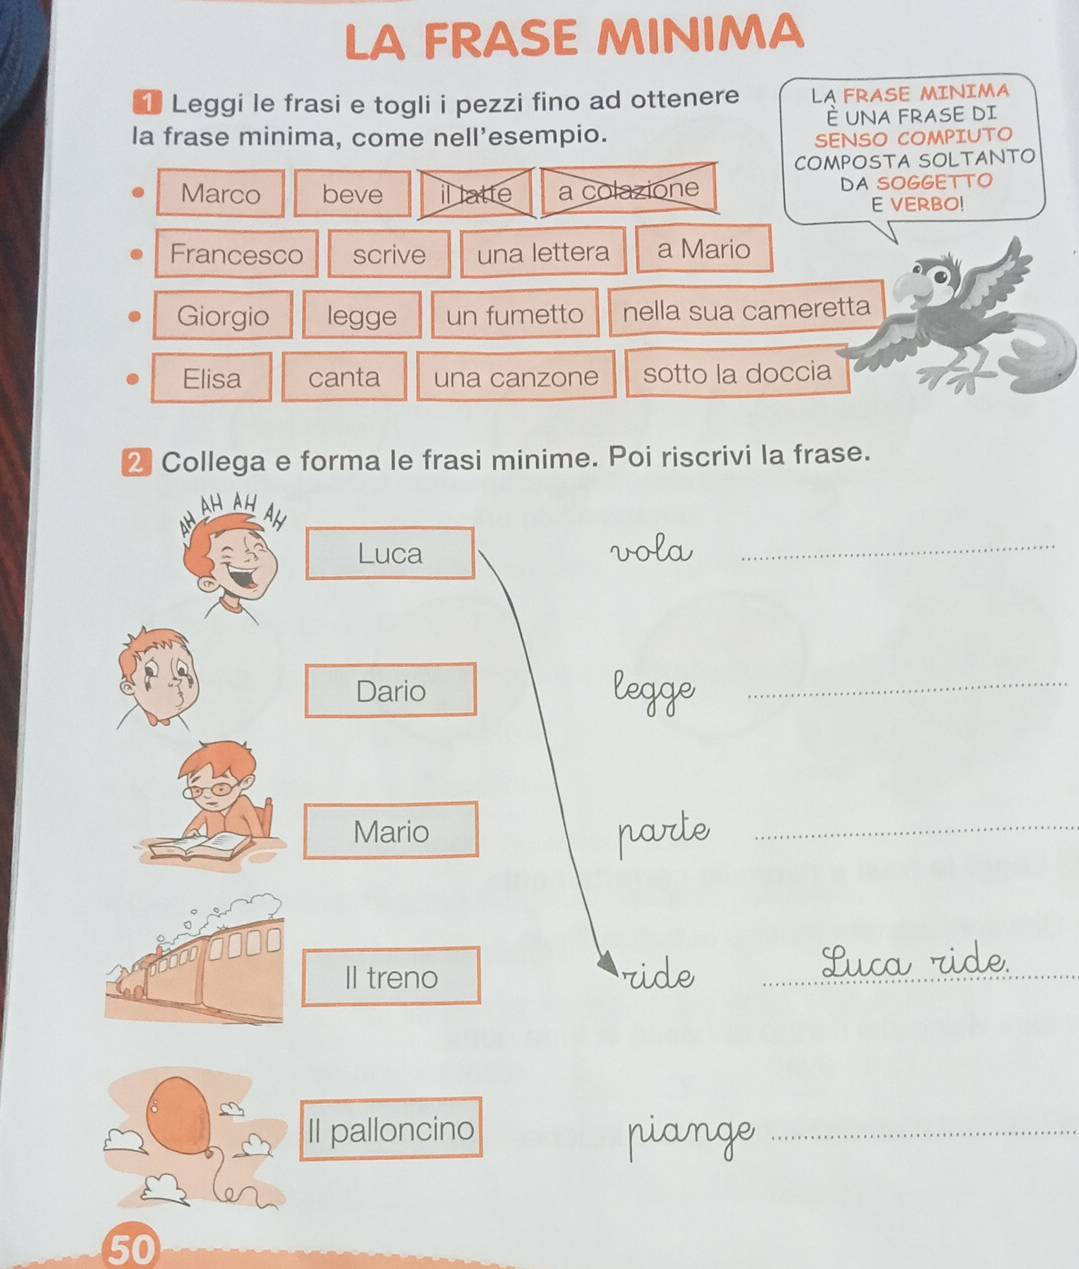 LA FRASE MINIMA
1 Leggi le frasi e togli i pezzi fino ad ottenere
la frase minima, come nell'esempio.
LA FRASE MINIMA
È UNA FRASE DI
SENSO COMPIUTO
COMPOSTA SOLTANTO
DA SOGGETTO
E VERBO!
• Marco beve il latte a colazione
• Francesco scrive una lettera a Mario
• Giorgio legge un fumetto nella sua cameretta
• Elisa canta una canzone sotto la doccia
2 Collega e forma le frasi minime. Poi riscrivi la frase.
AH AH AH AH
Luca vola
Dario legge
Mario parte
Il treno ride Luca ride.
Il palloncino piange
50